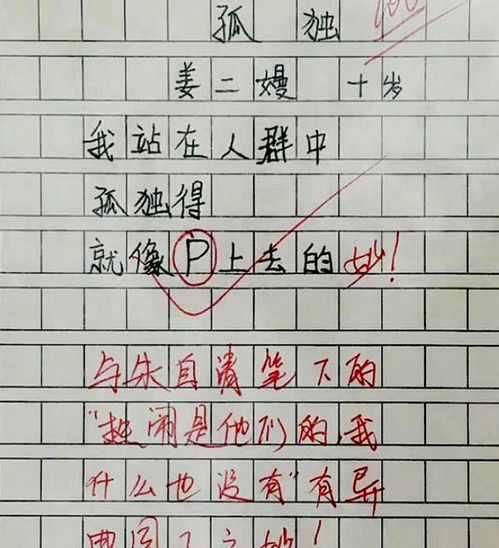 孤 独 100
姜二嫚 十岁
我站在人群中
孤独得
就像P上去的 妙！
与朱自清笔下的
“热闹是他们的，我
什么也没有”有异
曲同工之妙！